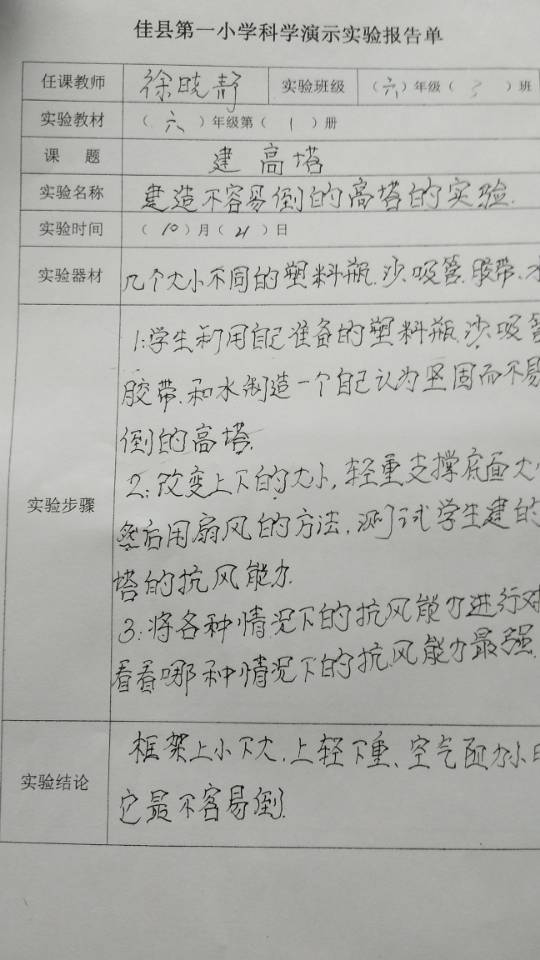 佳县第一小学科学演示实验报告单
任课教师 徐晓静 实验班级 （六）年级（3）班
实验教材 （六）年级第（1）册
课 题 建高塔
实验名称 建造不容易倒的高塔的实验.
实验时间 （10）月（21）日
实验器材 几个大小不同的塑料瓶.沙.吸管.胶带.水
实验步骤
1:学生利用自己准备的塑料瓶.沙.吸管
胶带.和水制造一个自己认为坚固而不易
倒的高塔.
2:改变上下的大小,轻重支撑底面大小
然后用扇风的方法,测试学生建的
塔的抗风能力.
3:将各种情况下的抗风能力进行对
看看哪种情况下的抗风能力最强.
实验结论
框架上小下大,上轻下重、空气阻力小
它最不容易倒.